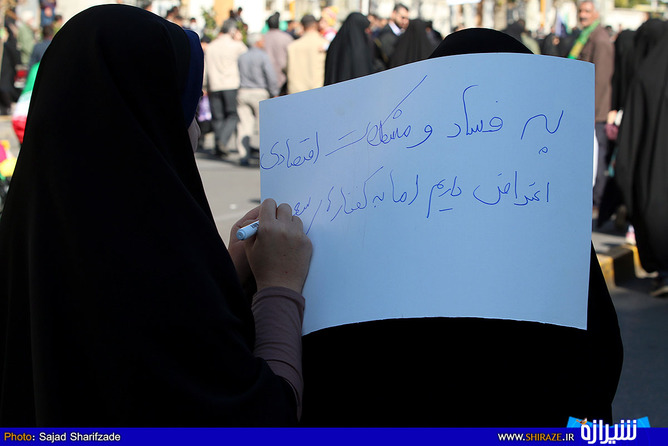 به فساد و مشکلات اقتصادی
اعتراض داریم اما به کفتارها
Photo: Sajad Sharifzade
WWW.SHIRAZE.IR
شیرازه